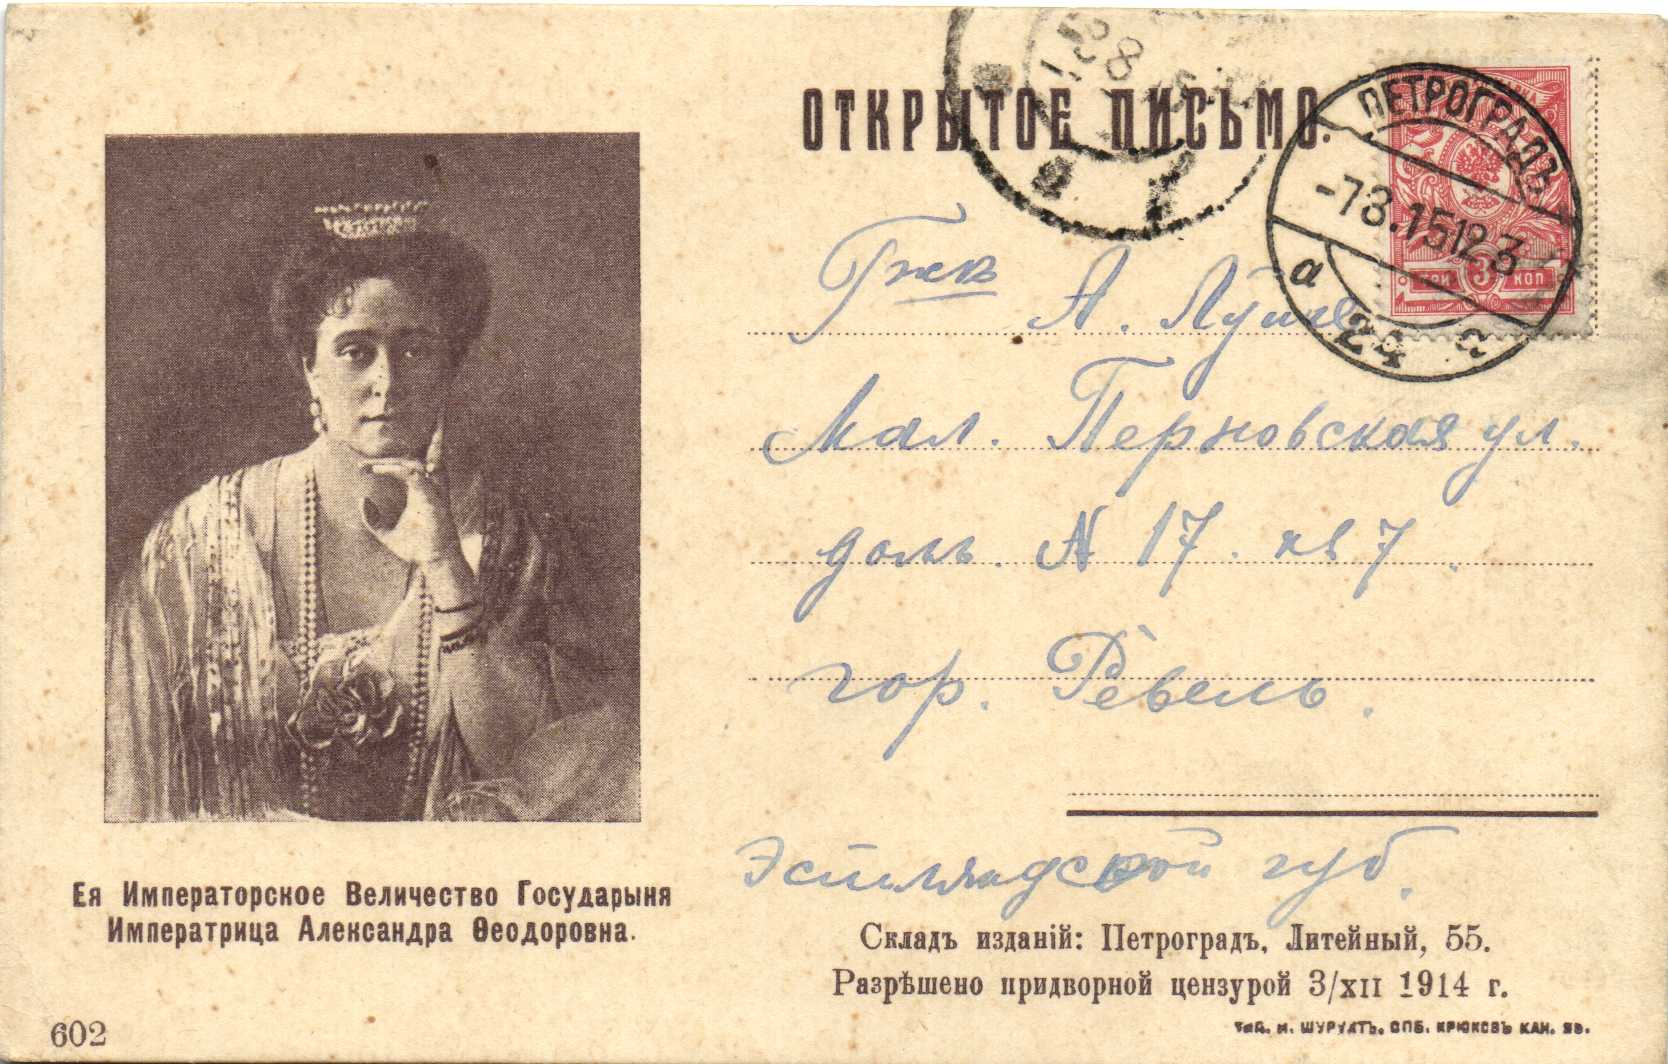 ОТКРЫТОЕ ПИСЬМО.
ПЕТРОГРАДЪ
-7 3.15 12.3
а 24 а
ТРИ 3 КОП
Гжѣ А.
Мал. Перновская ул.
домъ. № 17. кв 7.
гор. Ревель.
Эстляндской губ.
Ея Императорское Величество Государыня
Императрица Александра Ѳеодоровна.
Складъ изданій: Петроградъ, Литейный, 55.
Разрѣшено придворной цензурой 3/XII 1914 г.
Тип. И. ШУРУХТЪ, СПБ. КРЮКОВЪ КАН.
602